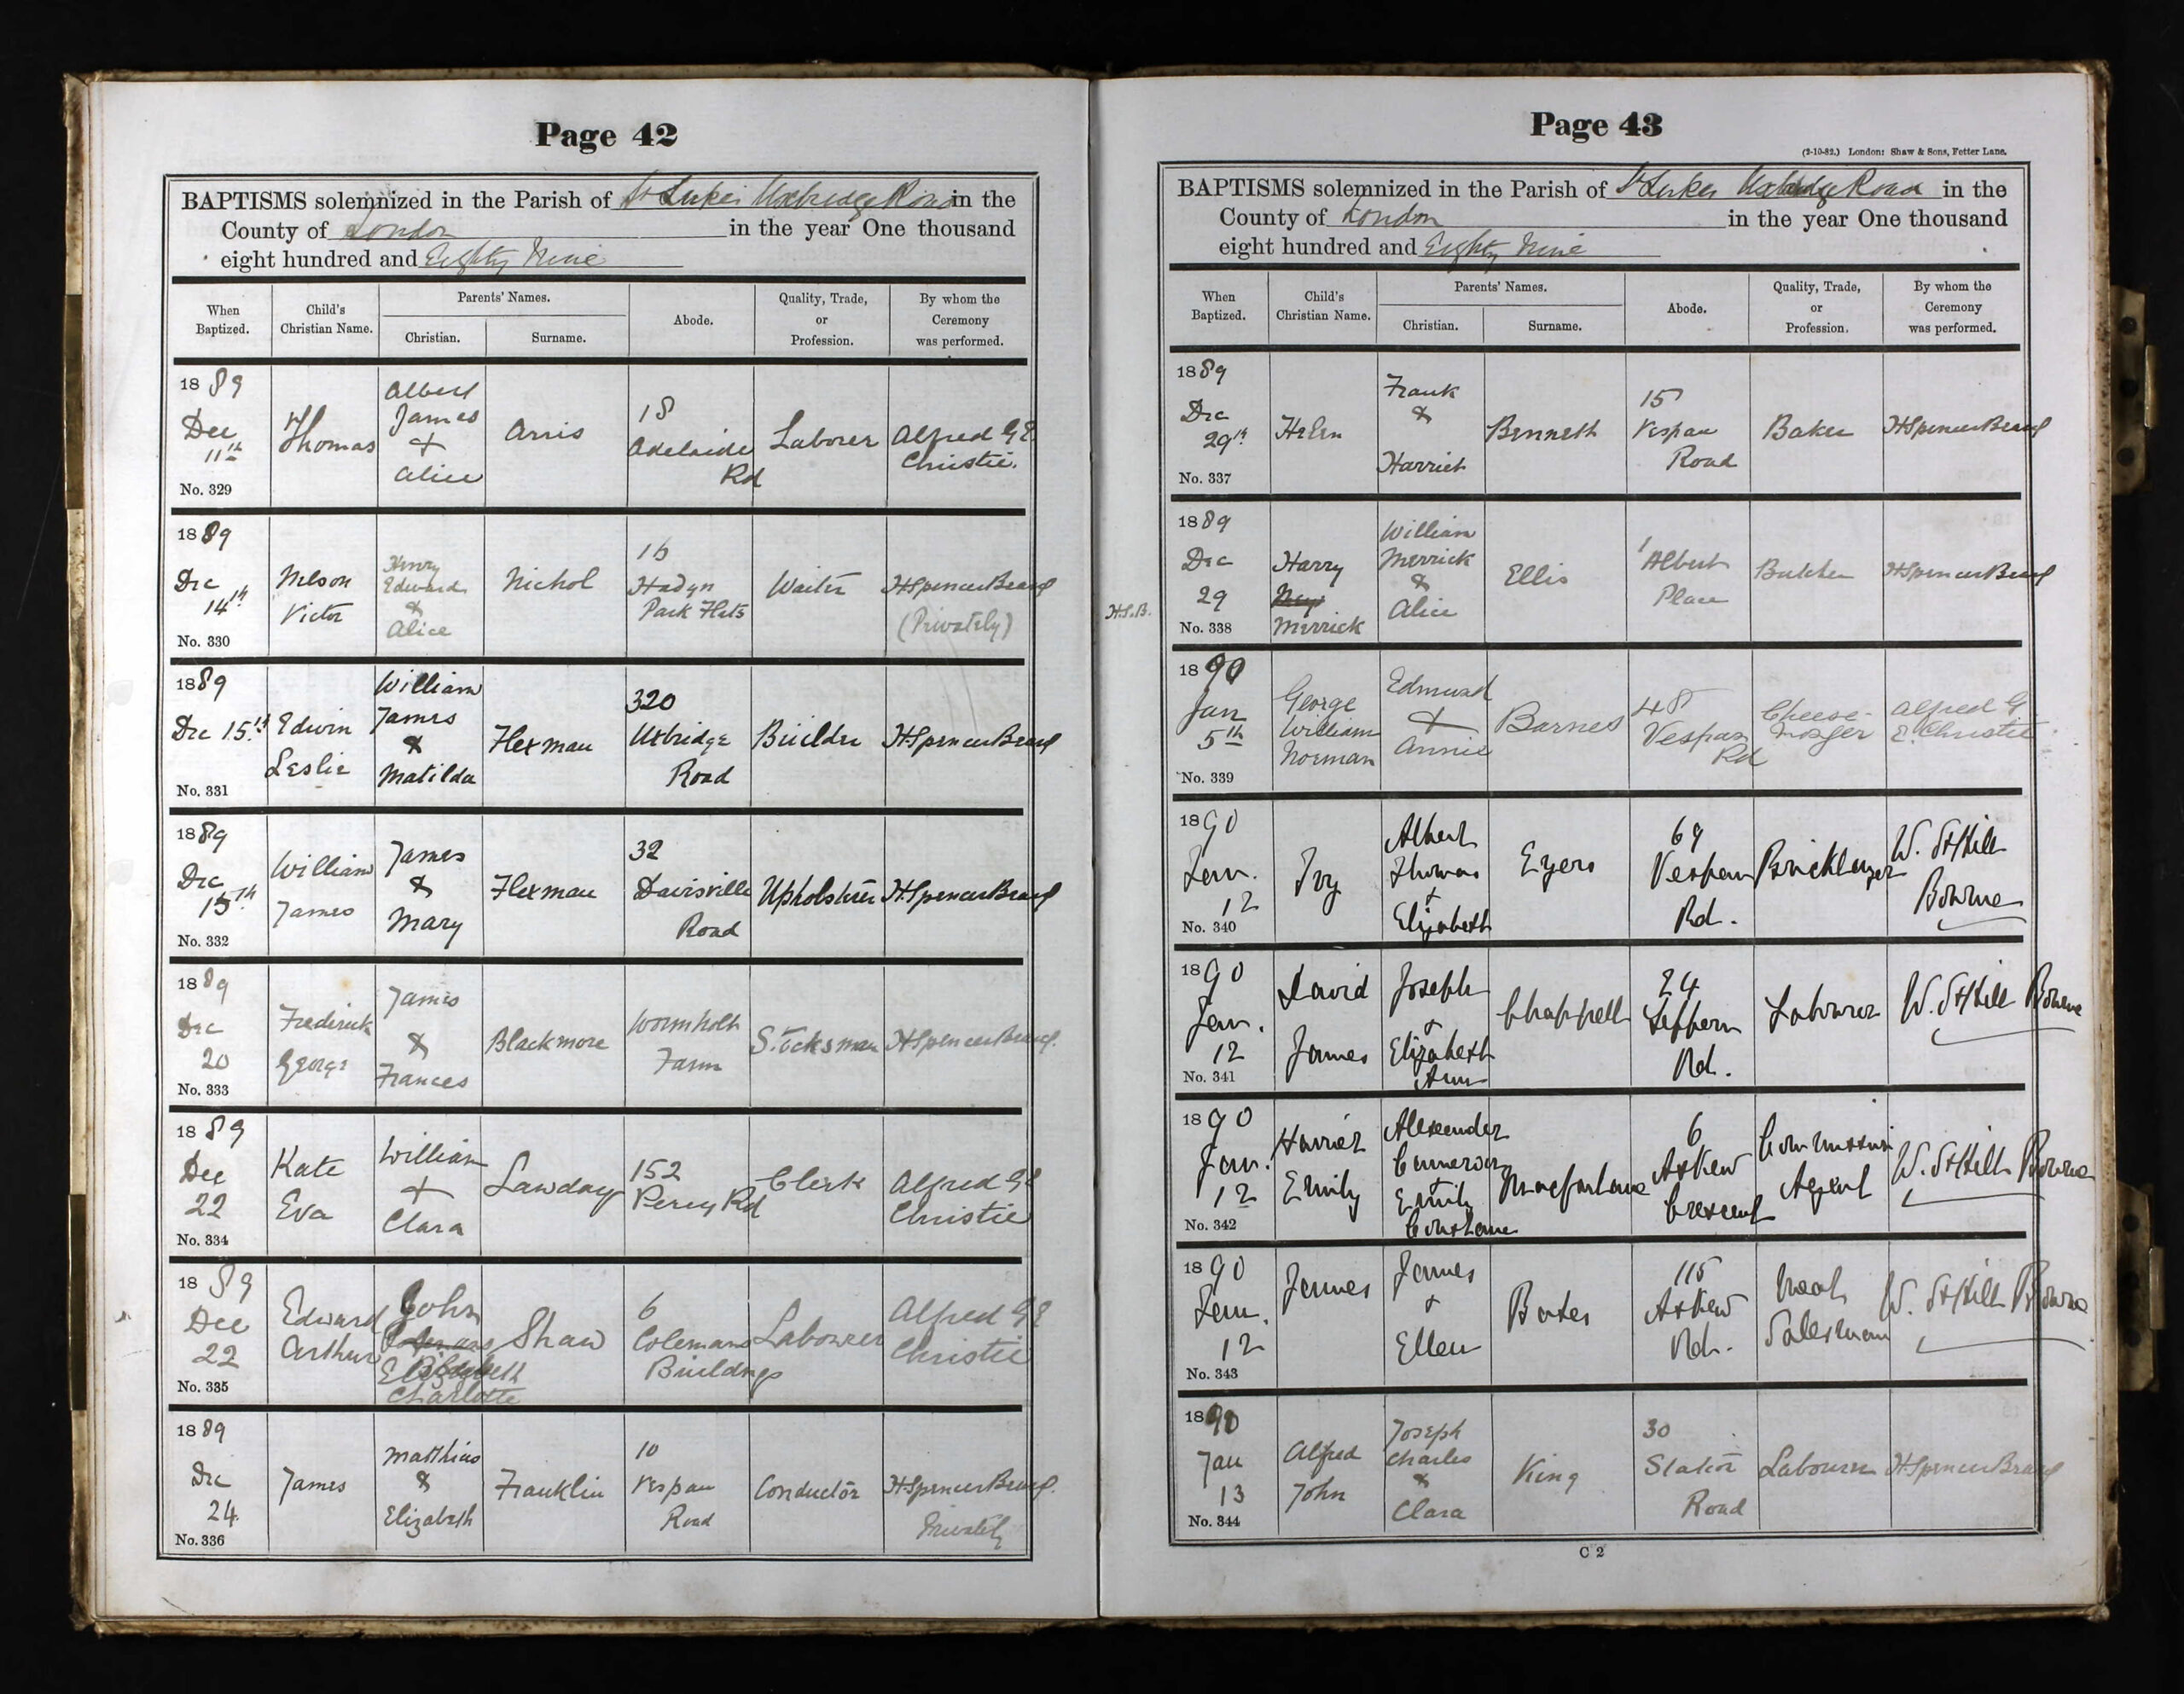 Page 42
BAPTISMS solemnized in the Parish of St Lukes Uxbridge Road in the
County of London in the year One thousand
eight hundred and Eighty Nine
When Baptized. Child's Christian Name. Parents' Names. Christian. Surname. Abode. Quality, Trade, or Profession. By whom the Ceremony was performed.
1889 Dec 11th No. 329 Thomas Albert James + Alice Arris 18 Adelaide Rd Laborer Alfred G E. Christie.
1889 Dec 14th No. 330 Nelson Victor Henry Edward & Alice Nichol 16 Hadyn Park Flats Waiter H Spencer (Privately)
1889 Dec 15th No. 331 Edwin Leslie William James & Matilda Flexman 320 Uxbridge Road Builder H Spencer
1889 Dec 15th No. 332 William James James & Mary Flexman 32 Davisville Road Upholsterer H Spencer
1889 Dec 20 No. 333 Frederick George James & Frances Blackmore Wormholt Farm Stocksman H Spencer
1889 Dec 22 No. 334 Kate Eva William + Clara Lawday 152 Percy Rd Clerk Alfred G E Christie
1889 Dec 22 No. 335 Edward Arthur John Charlotte Shaw 6 Colemans Buildings Labourer Alfred G E Christie
1889 Dec 24 No. 336 James Matthias & Elizabeth Franklin 10 Vespan Road Conductor H Spencer Privately
Page 43
(2-10-82.) London: Shaw & Sons, Fetter Lane.
BAPTISMS solemnized in the Parish of St Lukes Uxbridge Road in the
County of London in the year One thousand
eight hundred and Eighty Nine
When Baptized. Child's Christian Name. Parents' Names. Christian. Surname. Abode. Quality, Trade, or Profession. By whom the Ceremony was performed.
1889 Dec 29th No. 337 Helen Frank & Harriet Bennett 15 Vespan Road Baker H Spencer
H.S.B. 1889 Dec 29 No. 338 Harry Merrick William Merrick & Alice Ellis 1 Albert Place Butcher H Spencer
1890 Jan 5th No. 339 George William Norman Edmund + Annie Barnes 48 Vespan Rd Cheese-monger Alfred G E. Christie
1890 Jan. 12 No. 340 Ivy Albert Thomas + Elizabeth Eyers 69 Vespan Rd. Bricklayer W. St Hill Bourne
1890 Jan. 12 No. 341 David James Joseph + Elizabeth Ann Chappell 24 Rd. Labourer W. St Hill Bourne
1890 Jan. 12 No. 342 Harriet Emily Alexander Cameron + Emily Constance Macfarlane 6 Askew Crescent Commission Agent W. St Hill Bourne
1890 Jan. 12 No. 343 James James + Ellen Bates 115 Askew Rd. Meat Salesman W. St Hill Bourne
1890 Jan 13 No. 344 Alfred John Joseph Charles & Clara King 30 Station Road Labourer H Spencer
C 2